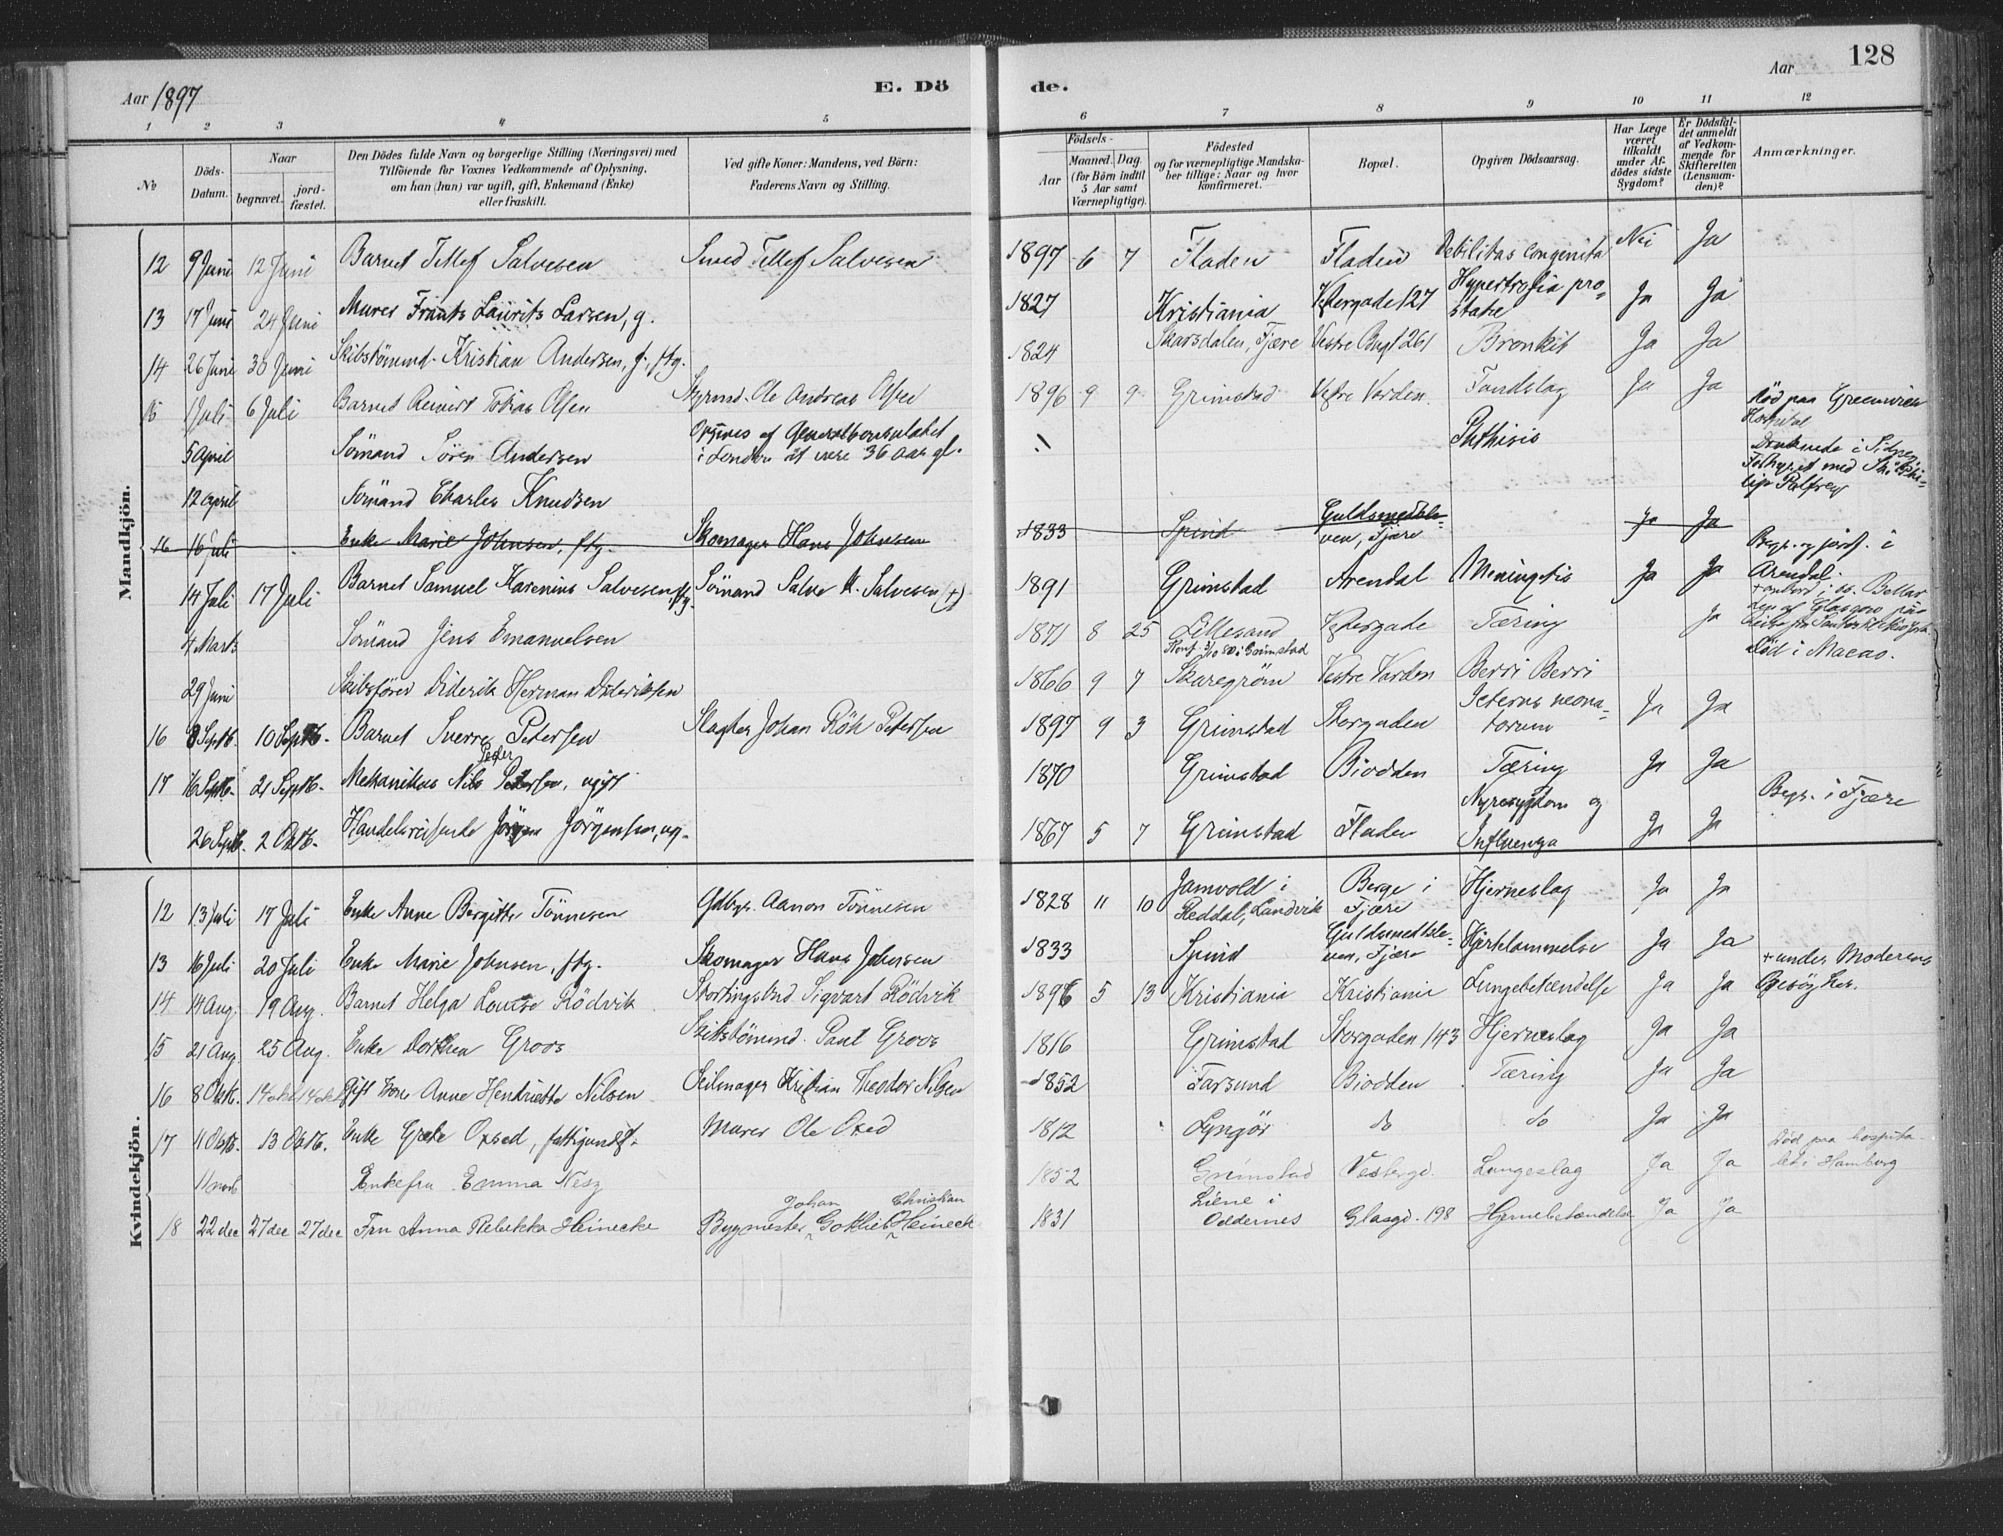 128
Aar 1897
E. Dö
de.
Aar
1 2 3 4 5 6 7 8 9 10 11 12
№
Döds-Datum.
Naar
begravet.
jord-fæstet.
Den Dödes fulde Navn og borgerlige Stilling (Næringsvei) med
Tilföiende for Voxnes Vedkommende af Oplysning,
om han (hun) var ugift, gift, Enkemand (Enke)
eller fraskilt.
Ved gifte Koner: Mandens, ved Börn:
Faderens Navn og Stilling.
Födsels-
Aar
Maaned. Dag.
(for Börn indtil
5 Aar samt
Værnepligtige).
Födested
og for værnepligtige Mandska-
ber tillige: Naar og hvor
konfirmeret.
Bopæl.
Opgiven Dödsaarsag.
Har Læge
været
tilkaldt
under Af-
dödes sidste
Sygdom?
Er Dödsfal-
det anmeldt
af Vedkom-
mende for
Skifteretten
(Lensman-
den)?
Anmærkninger.
Mandkjön.
12 9 Juni 12 Juni Barnet Tellef Salvesen Smed Tellef Salvesen 1897 6 7 Fladen Fladen Debilitas congenita Nei Ja
13 17 Juni 24 Juni Murer Frants Laurits Larsen, g. 1827 Kristiania Vestergade 127 Hypertrofia pro-
state Ja Ja
14 26 Juni 30 Juni Skibstömmd. Kristian Andersen, f., ftg. 1824 Skarsdalen, Fjære Vestre Bugt 261 Bronkit Ja Ja
15 1 Juli 6 Juli Barnet Reinert Tobias Olsen Styrmd. Ole Andreas Olsen 1896 9 9 Grimstad Vestre Varden Tandslag Ja Ja
5 April Sömand Sören Andersen Opgives af Generalkonsulatet
i London at være 36 aar gl. Phthisis Död paa Greenwich
Hospital
12 April Sömand Charles Knudsen Druknede i
16 16 Juli Enke Marie Johnsen, ftg. Skomager Hans Johnsen 1833 Spind Guldsmedkle-
ven, Fjære Ja Ja
14 Juli 17 Juli Barnet Samuel Karenius Salvesen, ftg. Sömand Salve K. Salvesen (+) 1891 Grimstad Arendal Meningitis Ja Ja Begr. og jordf. i
Arendal.
4 Marts Sömand Jens Emanuelsen 1871 8 25 Lillesand Vestergade Tæring Ja
29 Juni Skibsförer Diderik Herman Dideriksen 1866 9 7 Skaregrøm Vestre Varden Berri Berri Död i Macao.
16 8 Septb. 10 Septb. Barnet Sverre Petersen Slagter Johan Röh Petersen 1897 9 3 Grimstad Storgaden Icterus neona-
torum Ja Ja
17 16 Septb. 21 Septb. Mekanikus Nils Peder Petersen, ugift 1870 Grimstad Biodden Tæring Ja Ja
26 Septb. 2 Oktb. Handelsreisende Jörgen Jörgensen, ug. 1867 5 7 Grimstad Fladen Nyresygdom og
Influenza Ja Ja Begr. i Fjære
Kvindekjön.
12 13 Juli 17 Juli Enke Anne Bergitte Tönnesen Gdbgr. Aanon Tönnesen 1828 11 10 Jamvold i
Reddal, Landvik Berge i
Fjære Hjerneslag Ja Ja
13 16 Juli 20 Juli Enke Marie Johnsen, ftg. Skomager Hans Johnsen 1833 Spind Guldsmedkle-
ven, Fjære Hjertelammelse Ja Ja
14 14 Aug. 19 Aug. Barnet Helga Louise Rödvik Stortingsbud Sigvart Rödvik 1896 5 13 Kristiania Kristiania Lungebetændelse Ja Ja + under Moderens
Besög her.
15 21 Aug. 25 Aug. Enke Dorthea Groos Skibstömmd. Paul Groos 1816 Grimstad Storgaden 143 Hjerneslag Ja Ja
16 8 Oktb. 14 okt 14 okt Gift Kone Anne Henriette Nilsen Seilmager Kristian Theodor Nilsen 1852 Farsund Biodden Tæring Ja Ja
17 11 Oktb. 13 Oktb. Enke Grete Oxed, fattigunds. Murer Ole Oxed 1812 Lyngör do do Ja Ja
11 novb Enkefru Emma Ness 1852 Grimstad Vestergd. Lungeslag Ja Ja Död paa hospita-
let i Hamburg
18 22 dec 27 dec 27 dec Fru Anna Rebekka Heinecke Bygmester Johan Gotlieb Christian Heinecke 1831 Liene i
Oddernes Glasgd. 198 Hjernebetændelse Ja Ja